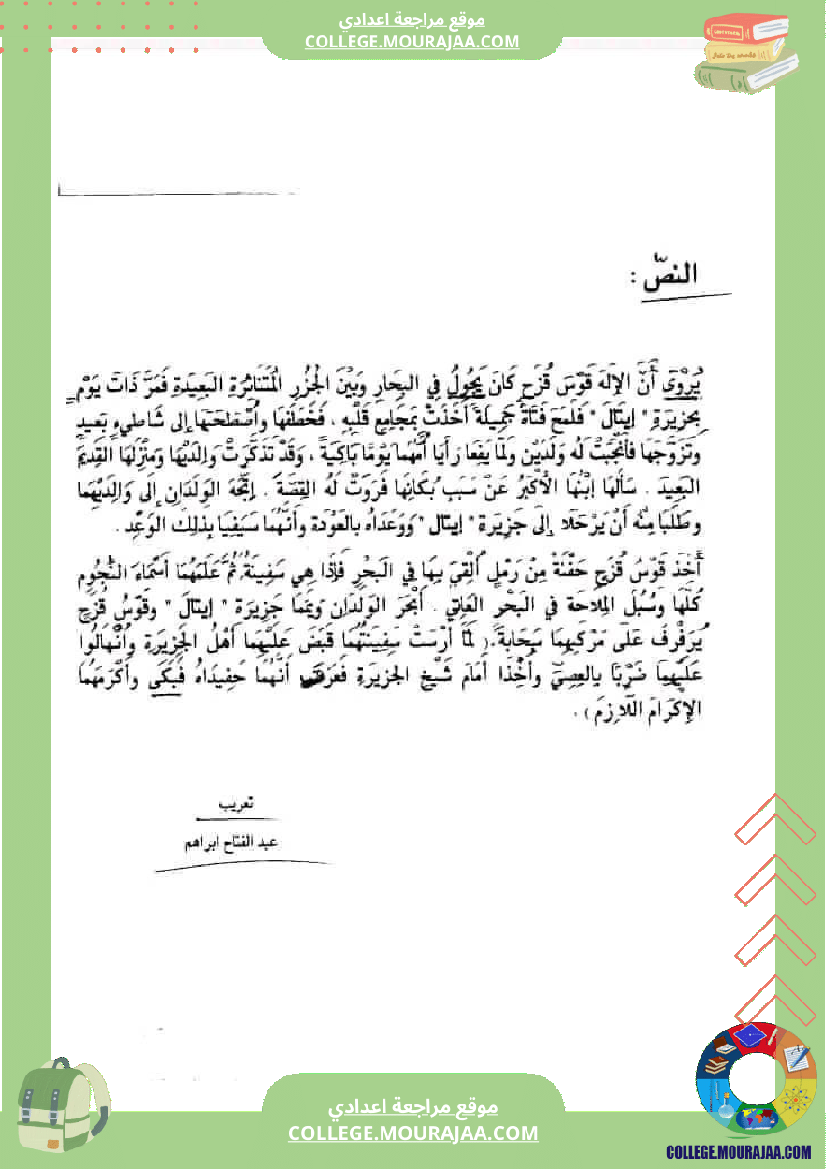 موقع مراجعة اعدادي
COLLEGE.MOURAJAA.COM
النصّ :
يُرْوَى أَنَّ الإِلَهَ قَوْسَ قُزَحٍ كَانَ يَجُولُ فِي البِحَارِ وَبَيْنَ الجُزُرِ المُتَنَاثِرَةِ البَعِيدَةِ فَمَرَّ ذَاتَ يَوْمٍ
بِجَزِيرَةِ " إيتَال " فَلَمَحَ فَتَاةً جَمِيلَةً أَخَذَتْ بِمَجَامِعِ قَلْبِهِ ، فَخَطَفَهَا وأَسْتَصْحَبَهَا إلى شَاطِيءٍ بَعِيدٍ
وتَزَوَّجَهَا فَأَنْجَبَتْ لَهُ وَلَدَيْنِ وَلَمَّا يَفَعَا رَأَيَا أُمَّهُمَا يَوْمًا بَاكِيَةً ، وَقَدْ تَذَكَّرَتْ وَالِدَيْهَا وَمَنْزِلَهَا القَدِيمَ
البَعِيدَ . سَأَلَهَا إبْنُهَا الأَكْبَرُ عَنْ سَبَبِ بُكَائِهَا فَرَوَتْ لَهُ القِصَّةَ . إِتَّجَهَ الوَلَدَانِ إِلَى وَالِدَيْهِمَا
وطَلَبَا مِنْهُ أَنْ يَرْحَلَا إِلَى جَزِيرَةِ " إيتَال " وَوَعَدَاهُ بالعَوْدَةِ وأَنَّهُمَا سَيَفِيَا بِذَلِكَ الوَعْدِ .
أَخَذَ قَوْسُ قُزَحٍ حَفْنَةً مِنْ رَمْلٍ أَلْقَى بِهَا فِي البَحْرِ فَإِذَا هِيَ سَفِينَةٌ ثُمَّ عَلَّمَهُمَا أَسْمَاءَ النُّجُومِ
كُلَّهَا وَسُبُلَ المِلَاحَةِ فِي البَحْرِ العَاتِي . أَبْحَرَ الوَلَدَانِ وَيَمَّمَا جَزِيرَةَ " إيتَال " وقَوْسُ قُزَحٍ
يُرَفْرِفُ عَلَى مَرْكَبِهِمَا سَحَابَةً ( لَمَّا أَرْسَتْ سَفِينَتُهُمَا قَبَضَ عَلَيْهِمَا أَهْلُ الجَزِيرَةِ وأَنْهَالُوا
عَلَيْهِمَا ضَرْبًا بِالعِصِيِّ وأُخِذَا أَمَامَ شَيْخِ الجَزِيرَةِ فَعَرَفَ أَنَّهُمَا حَفِيدَاهُ فَبَكَى وأَكْرَمَهُمَا
الإِكْرَامَ اللَّازِمَ ) .
تعريب
عبد الفتاح ابراهم
موقع مراجعة اعدادي
COLLEGE.MOURAJAA.COM
COLLEGE.MOURAJAA.COM